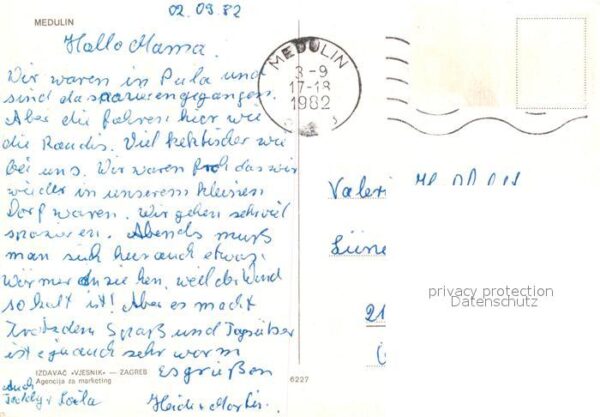 02.09.82
MEDULIN
Hallo Mama.
Wir waren in Pula und
sind da spazierengegangen.
Aber die fahren hier wie
die Raudis. Viel hektischer wie
bei uns. Wir waren froh das wir
wieder in unserem kleinen
Dorf waren. Wir gehen sehr viel
spazieren. Abends muß
man sich hier auch etwas
wärmer anziehen, weil der Wind
so kalt ist! Aber es macht
trotzdem Spaß und Tagsüber
ist e ja auch sehr warm
Es grüßen
Auch
Heidi + Martin.
IZDAVAČ «VJESNIK» — ZAGREB
Agencija za marketing
6227
MEDULIN
3-9
17-18
1982
Valeri
Lüne
21
privacy protection
Datenschutz